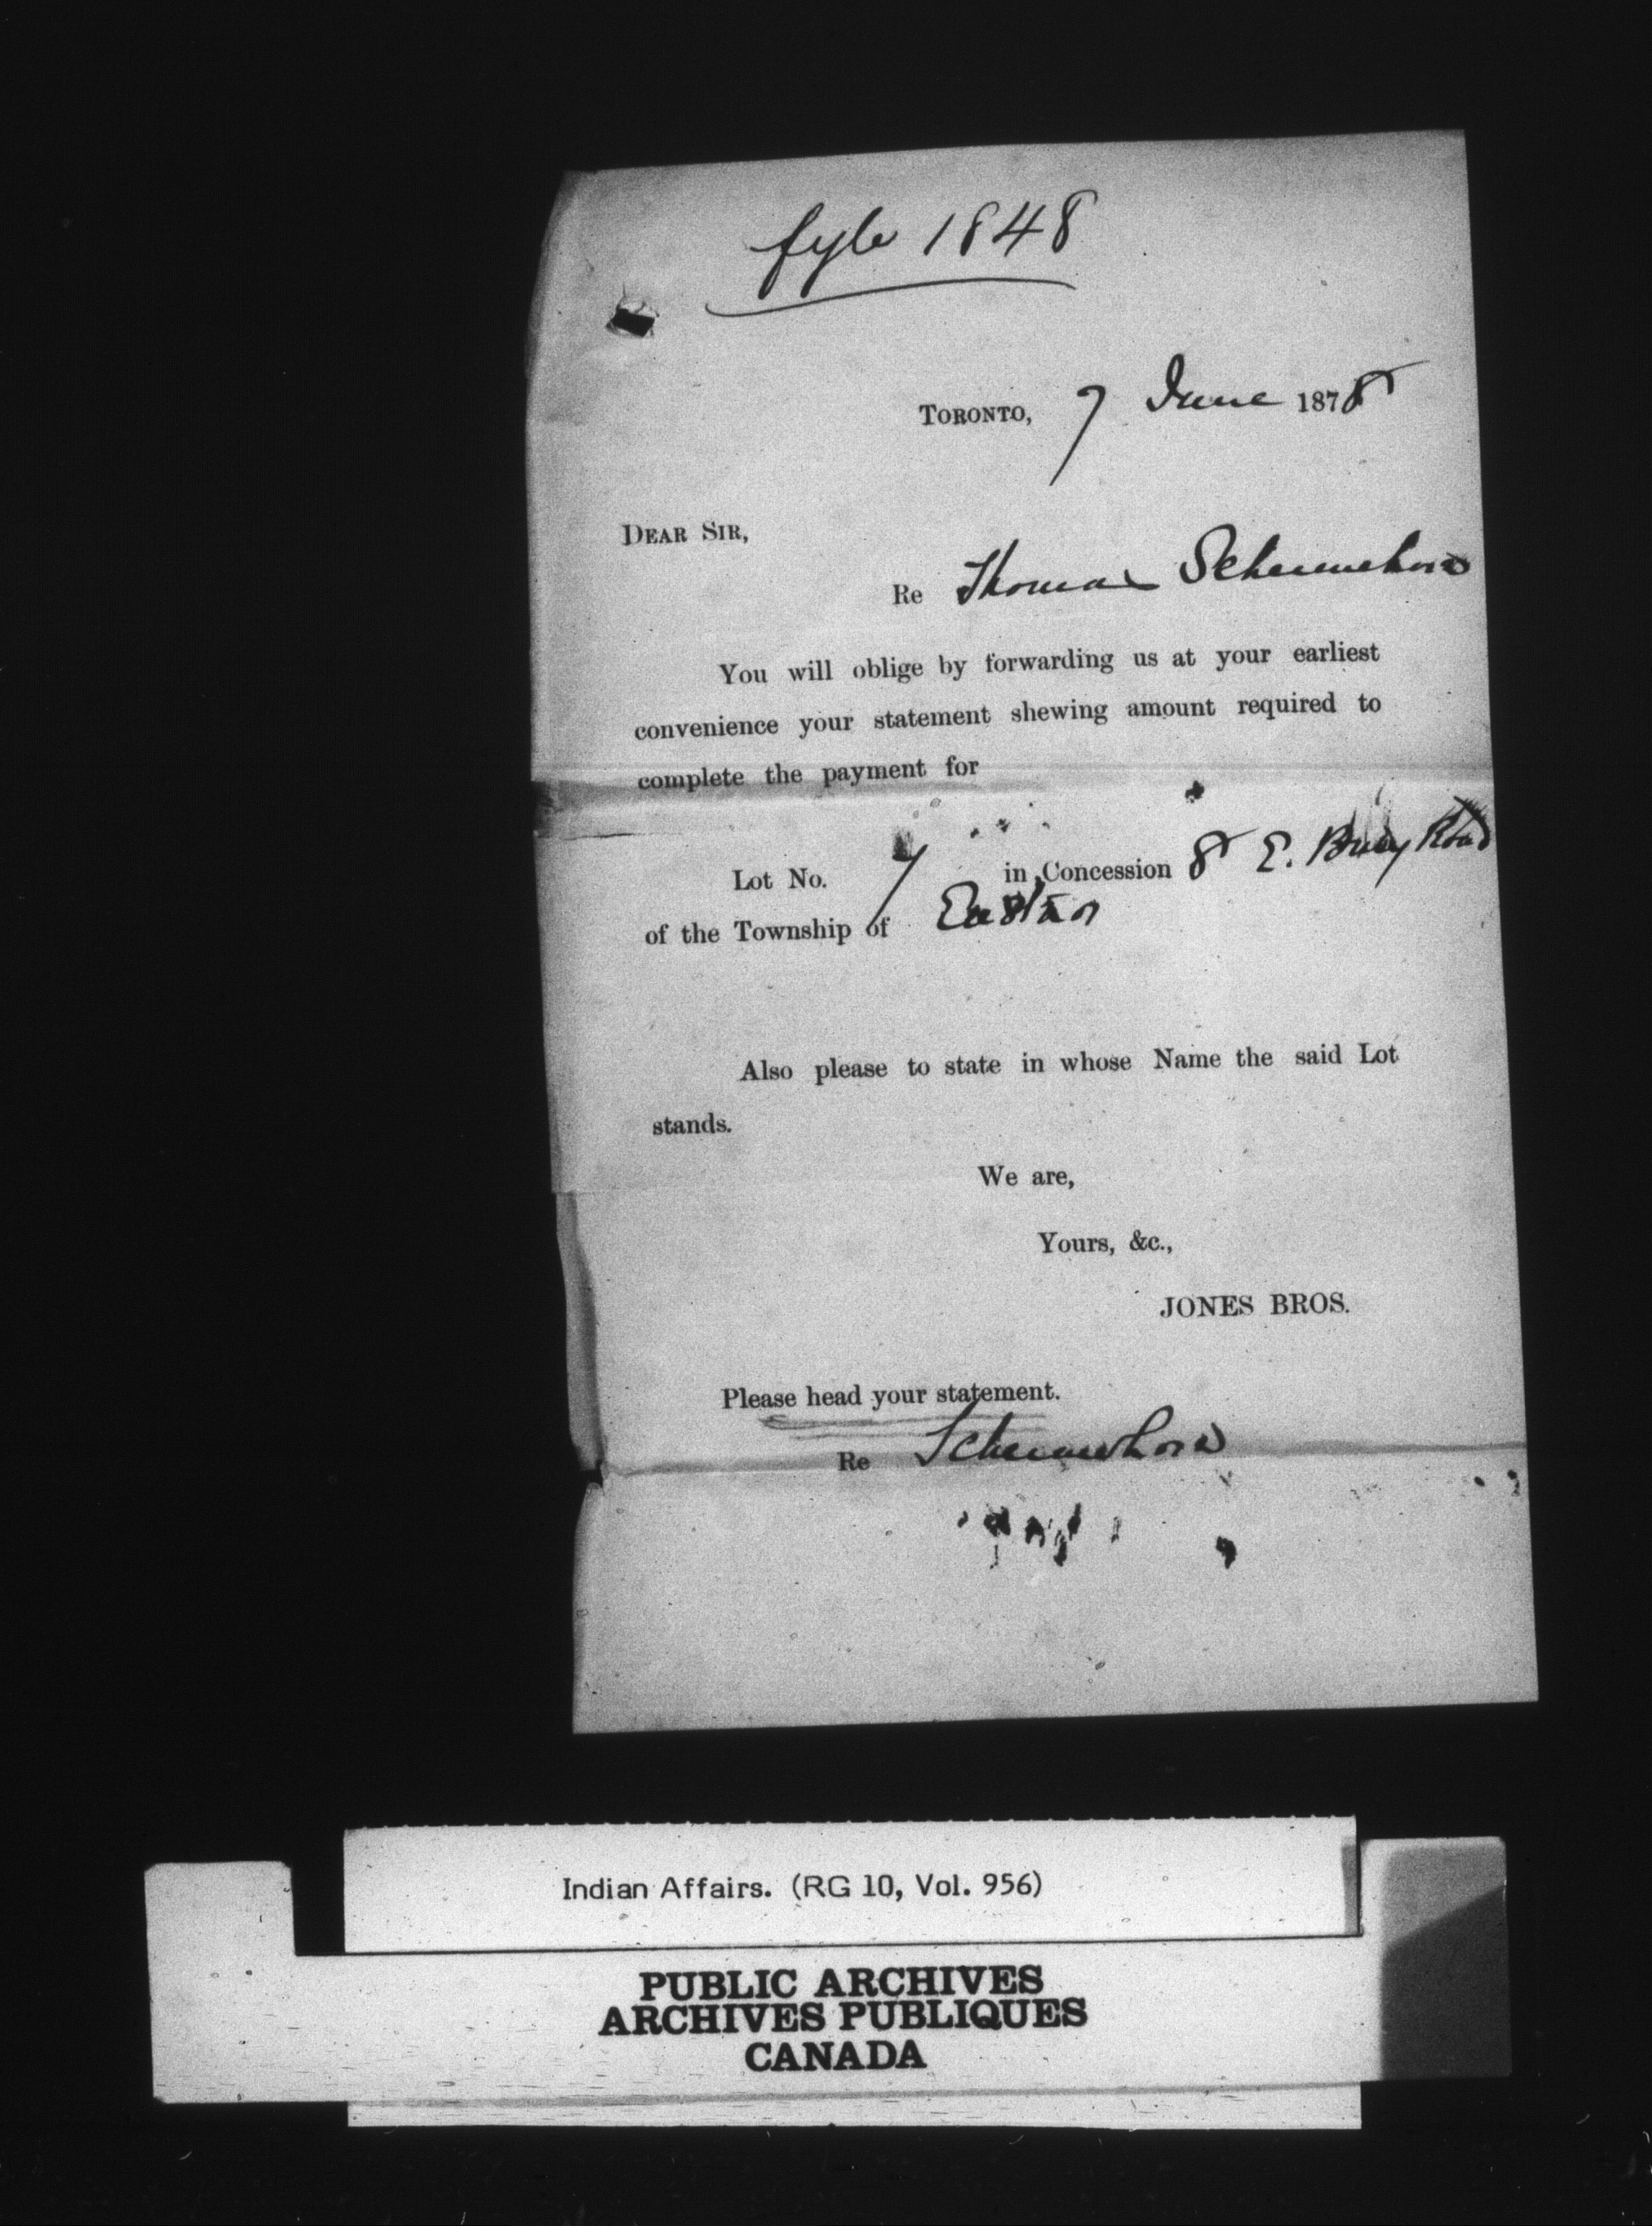 fyle 1848
TORONTO, 7 June 1878
DEAR SIR,
Re Thomas
You will oblige by forwarding us at your earliest
convenience your statement shewing amount required to
complete the payment for
Lot No. 7 in Concession 8 E. Bury Road
of the Township of Eastnor
Also please to state in whose Name the said Lot
stands.
We are,
Yours, &c.,
JONES BROS.
Please head your statement.
Re
Indian Affairs. (RG 10, Vol. 956)
PUBLIC ARCHIVES
ARCHIVES PUBLIQUES
CANADA